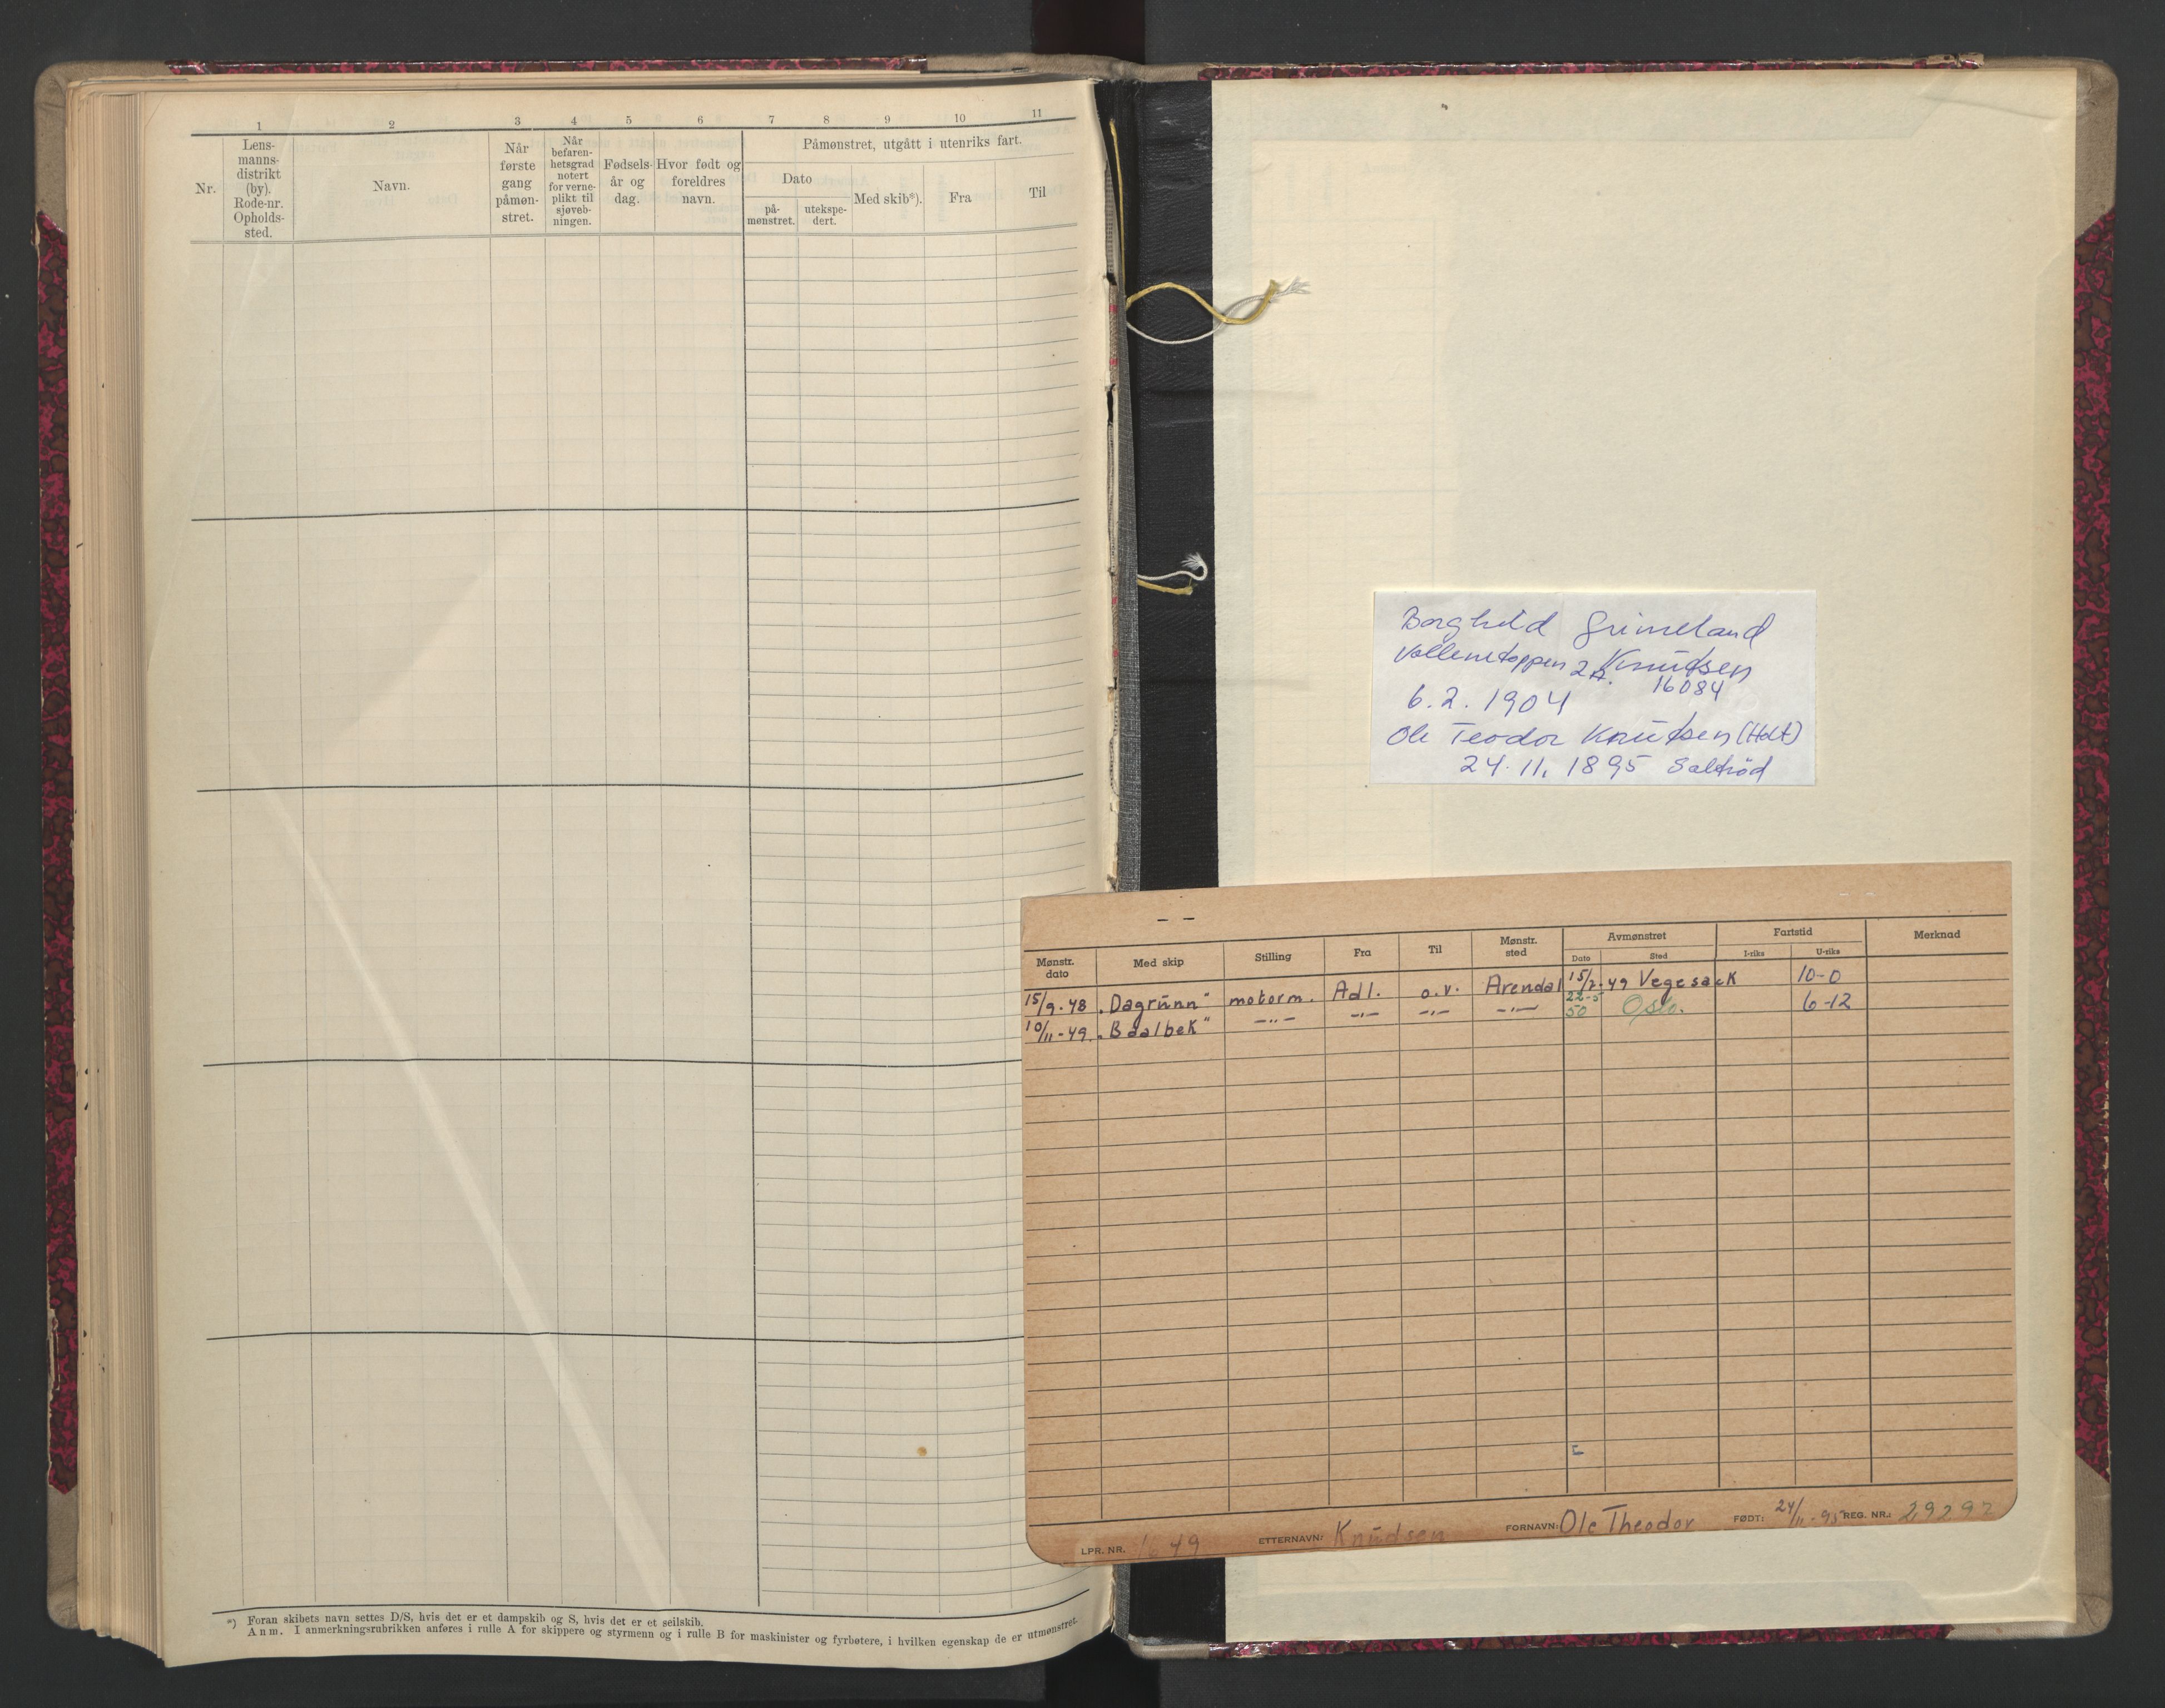 1 2 3 4 5 6 7 8 9 10 11
Nr.
Lens-
manns-
distrikt
(by).
Rode-nr.
Opholds-
sted.
Navn.
Når
første
gang
påmøn-
stret.
Når
befaren-
hetsgrad
notert
for verne-
plikt til
sjøveb-
ningen.
Fødsels-
år og
dag.
Hvor født og
foreldres
navn.
Påmønstret, utgått i utenriks fart.
Dato
på-
mønstret.
utekspe-
dert.
Med skib*).
Fra
Til
*) Foran skibets navn settes D/S, hvis det er et dampskib og S, hvis det er et seilskib.
Anm. I anmerkningsrubrikken anføres i rulle A for skippere og styrmenn og i rulle B for maskinister og fyrbøtere, i hvilken egenskap de er utmønstret.
Borghild Grimeland
Knudsen
16084
6.2.1904
Ole Teodor Knudsen (Holt)
24.11.1895 Saltrød
Mønstr. dato Med skip Stilling Fra Til Mønstr. sted Avmønstret Fartstid Merknad
Dato Sted I-riks U-riks
15/9-48 „Dagrunn" motorm. Adl. o.v. Arendal 15/7-49 Vegesack 10-0
10/11-49. „Baalbek" -„- -„- -„- -„- 22-5 50 Oslo. 6-12
LPR. NR. 1649 ETTERNAVN: Knudsen FORNAVN: Ole Theodor FØDT: 24/11-95 REG. NR.: 29292